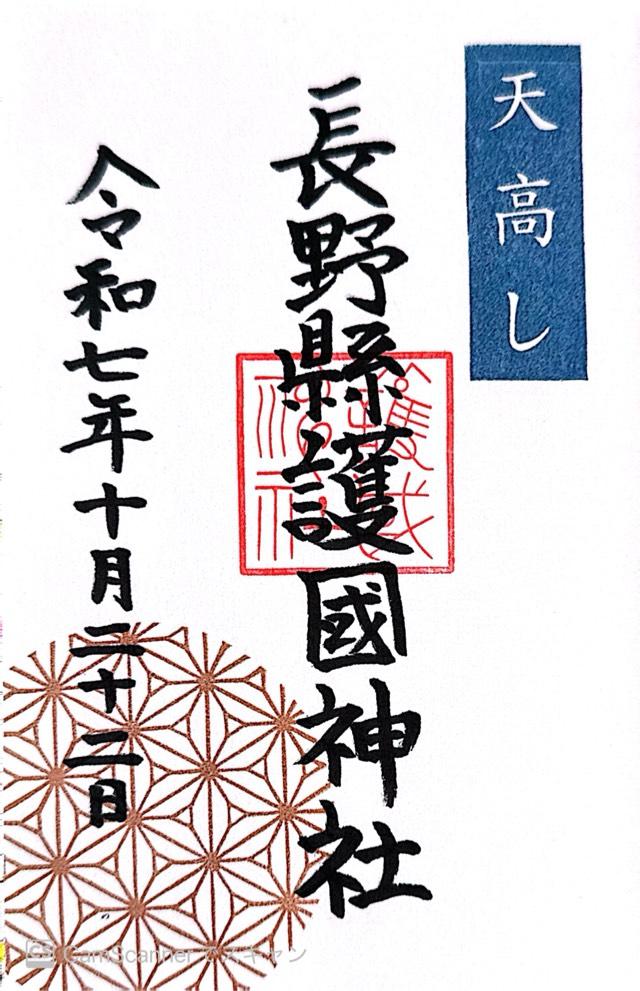 天高し
長野縣護國神社
令和七年十月二十二日
CS CamScanner でスキャン